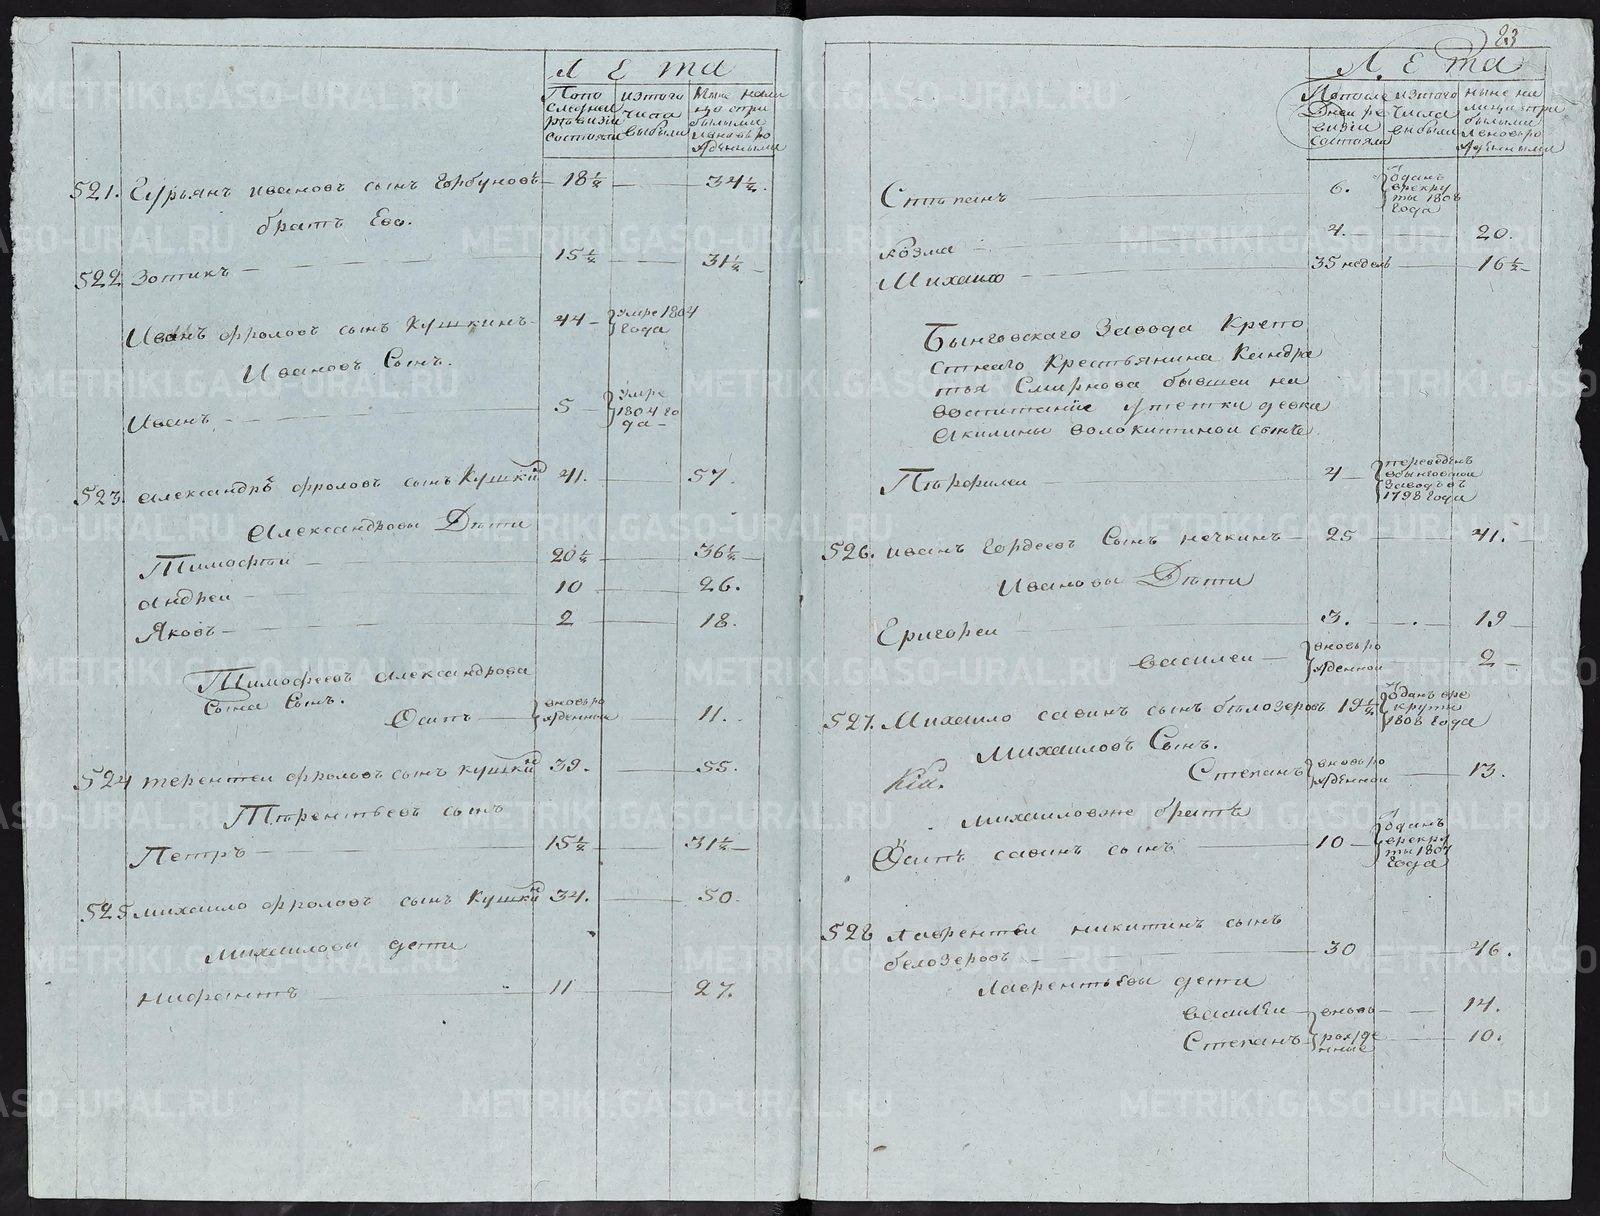 Л Е та
Попо
следней
ревизіи
состояли
изтого
числа
выбыли
Ныне нали
цо спри
былыми
иновь ро
жденными
521. Гурьянъ ивановъ сынъ Горбуновъ 18½ 34½.
братъ Ево.
522 Зотикъ 15½ 31½
Иванъ фроловъ сынъ Кушкинъ 44 умре 1804
года
Ивановъ Сынъ.
Иванъ 5 умре
1804 го
да
523. александръ фроловъ сынъ Кушкинъ 41. 57.
Александровы Дѣти
Тимофѣй 20½ 36½
андреи 10 26.
Яковъ 2 18.
Тимофеевъ александрова
Сына Сынъ.
Осипъ вновь ро
жденной 11.
524 терентеи фроловъ сынъ кушкинъ 39. 55.
Тѣрентьевъ сынъ
Петръ 15½ 31½
525 михаило фроловъ сынъ Кушкинъ 34. 50.
михаиловы дети
нифантъ 11 27.
83
Л Е та
Попосле
Дней ре
визіи
состояли
изтого
числа
выбыли
ныне на
лицо спри
былыми
иновь ро
жденными
Степанъ 6. Отданъ
врекру
ты 1808
года
козма 4. 20.
Михаило 35 недель 16½
Бынговскаго Завода Крепо
стнаго Крестьянина Кандра
тья Смирнова бывшеи на
воспитаніе у тетки девки
акилины волокитиной сынъ.
Пѣрфилеи 4 переведенъ
вбынговскои
Заводъ въ
1798 года
526. иванъ Гордеевъ Сынъ нечкинъ 25 41.
Ивановы Дѣти
Григореи 3. 19
василеи вновь ро
жденной 2
527. Михаило савинъ сынъ бѣлозеровъ 19½ Отданъ вре
круты
1808 года
Михаиловъ Сынъ.
Степанъ вновь ро
жденной 13.
михаиловже братъ
Осипъ савинъ сынъ 10 Отданъ
врекру
ты 1807
года
528 лаврентеи никитинъ сынъ
белозеровъ 30 46.
лаврентьевы дети
василеи вновь 14.
Степанъ рожде
нные 10.
METRIKI.GASO-URAL.RU